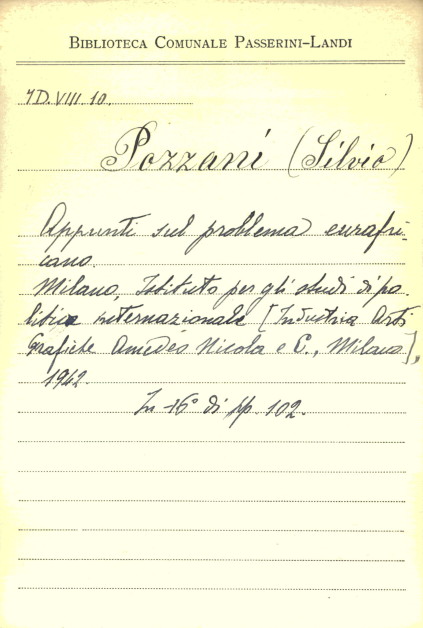 BIBLIOTECA COMUNALE PASSERINI-LANDI
4D.VIII.10.
Pozzani (Silvio)
Appunti sul problema eurafri-
cano.
Milano, Istituto per gli studi di po-
litica internazionale [Industria Arti
Grafiche Amedeo Nicola e C., Milano],
1942.
In-16° di pp. 102.